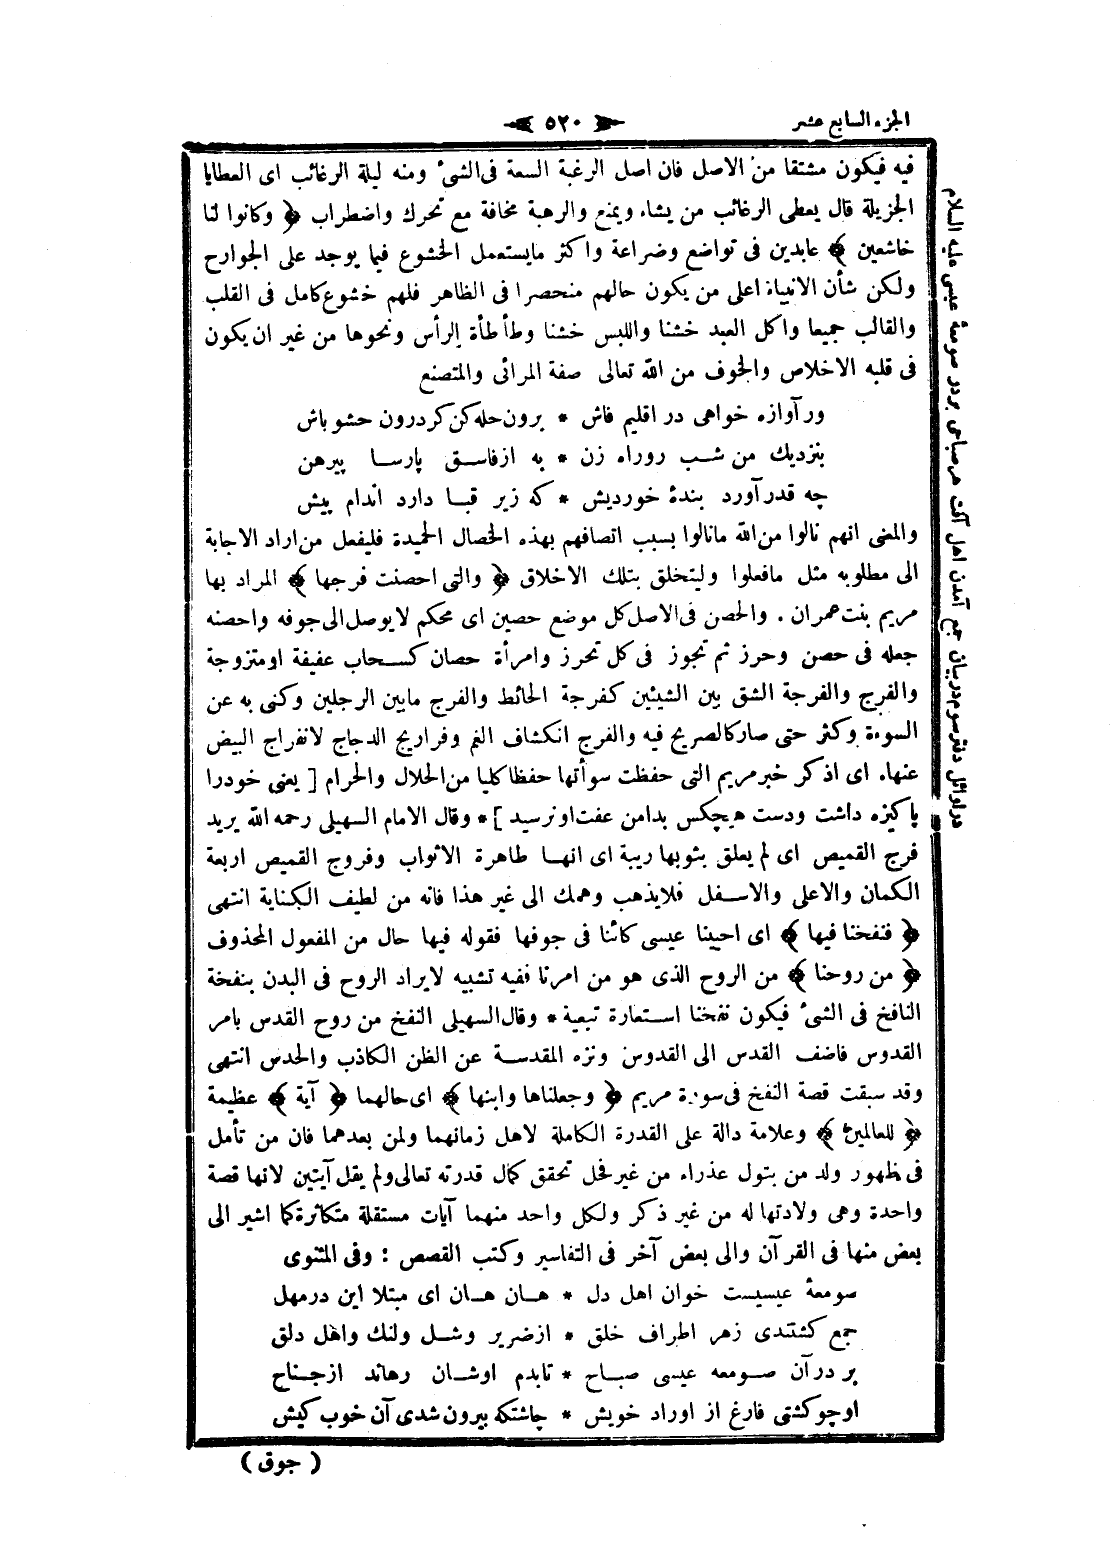 الجزء السابع عشر
﴿ ٥٢٠ ﴾
فيه فيكون مشتقا من الاصل فان اصل الرغبة السعة فى الشئ ومنه ليلة الرغائب اى العطايا
الجزيلة قال يعطى الرغائب من يشاء ويمنع والرهبة مخافة مع تحرك واضطراب ﴿ وكانوا لنا
خاشعين ﴾ عابدين فى تواضع وضراعة واكثر مايستعمل الخشوع فيما يوجد على الجوارح
ولكن شأن الانبياء اعلى من يكون حالهم منحصرا فى الظاهر فلهم خشوع كامل فى القلب
والقالب جميعا واكل العبد خشنا واللبس خشنا وطأطأة الرأس ونحوها من غير ان يكون
فى قلبه الاخلاص والخوف من الله تعالى صفة المرائى والمتصنع
ورآوازه خواهى در اقليم فاش * برون حله كن كردرون حشو باش
بنزديك من شب روراه زن * به ازفاسق پارسا پيرهن
چه قدر آورد بندهٔ خورديش * كه زير قبا دارد اندام پيش
والمعنى انهم نالوا من الله مانالوا بسبب اتصافهم بهذه الخصال الحميدة فليفعل من اراد الاجابة
الى مطلوبه مثل مافعلوا وليتخلق بتلك الاخلاق ﴿ والتى احصنت فرجها ﴾ المراد بها
مريم بنت عمران . والحصن فى الاصل كل موضع حصين اى محكم لايوصل الى جوفه واحصنه
جعله فى حصن وحرز ثم تجوز فى كل تحرز وامرأة حصان كسحاب عفيفة اومتزوجة
والفرج والفرجة الشق بين الشيئين كفرجة الحائط والفرج مابين الرجلين وكنى به عن
السوءة وكثر حتى صار كالصريح فيه والفرج انكشاف الغم وفراريج الدجاج لانفراج البيض
عنها. اى اذكر خبر مريم التى حفظت سوأتها حفظا كليا من الحلال والحرام [ يعنى خودرا
پاكيزه داشت ودست هيچكس بدامن عفت او نرسيد ] * وقال الامام السهيلى رحمه الله يريد
فرج القميص اى لم يعلق بثوبها ريبة اى انها طاهرة الاثواب وفروج القميص اربعة
الكمان والاعلى والاسفل فلايذهب وهمك الى غير هذا فانه من لطيف الكناية انتهى
﴿ فنفخنا فيها ﴾ اى احيينا عيسى كائنا فى جوفها فقوله فيها حال من المفعول المحذوف
﴿ من روحنا ﴾ من الروح الذى هو من امرنا ففيه تشبيه لايراد الروح فى البدن بنفخة
النافخ فى الشئ فيكون نفخنا استعارة تبعية * وقال السهيلى النفخ من روح القدس بامر
القدوس فاضف القدس الى القدوس ونزه المقدسة عن الظن الكاذب والحدس انتهى
وقد سبقت قصة النفخ فى سورة مريم ﴿ وجعلناها وابنها ﴾ اى حالهما ﴿ آية ﴾ عظيمة
﴿ للعالمين ﴾ وعلامة دالة على القدرة الكاملة لاهل زمانهما ولمن بعدهما فان من تأمل
فى ظهور ولد من بتول عذراء من غير فحل تحقق كمال قدرته تعالى ولم يقل آيتين لانها قصة
واحدة وهى ولادتها له من غير ذكر ولكل واحد منهما آيات مستقلة متكاثرة كما اشير الى
بعض منها فى القرآن والى بعض آخر فى التفاسير وكتب القصص : وفى المثنوى
صومعهٔ عيسيست خوان اهل دل * هان هان اى مبتلا اين درمهل
جمع كشتندى زهر اطراف خلق * ازضرير وشل ولنك واهل دلق
بر در آن صومعه عيسى صباح * تابدم اوشان رهاند ازجناح
اوچو كشتى فارغ از اوراد خويش * چاشتكه بيرون شدى آن خوب كيش
( جوق )
در اوائل دفتر سوم در بيان جمع آمدن اهل آفت هر صباحى بردر صومعهٔ عيسى عليه السلام